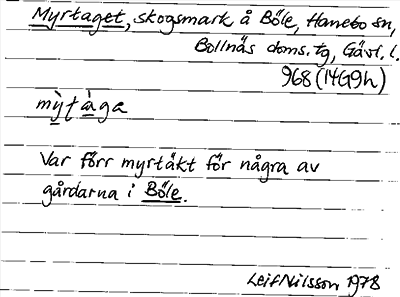 Myrtaget, skogsmark å Böle, Hanebo sn,
Bollnäs doms. tg, Gävl. l.
968 (14G9h)
my̆̀tà̱ga
Var förr myrtäkt för några av
gårdarna i Böle.
Leif Nilsson 1978